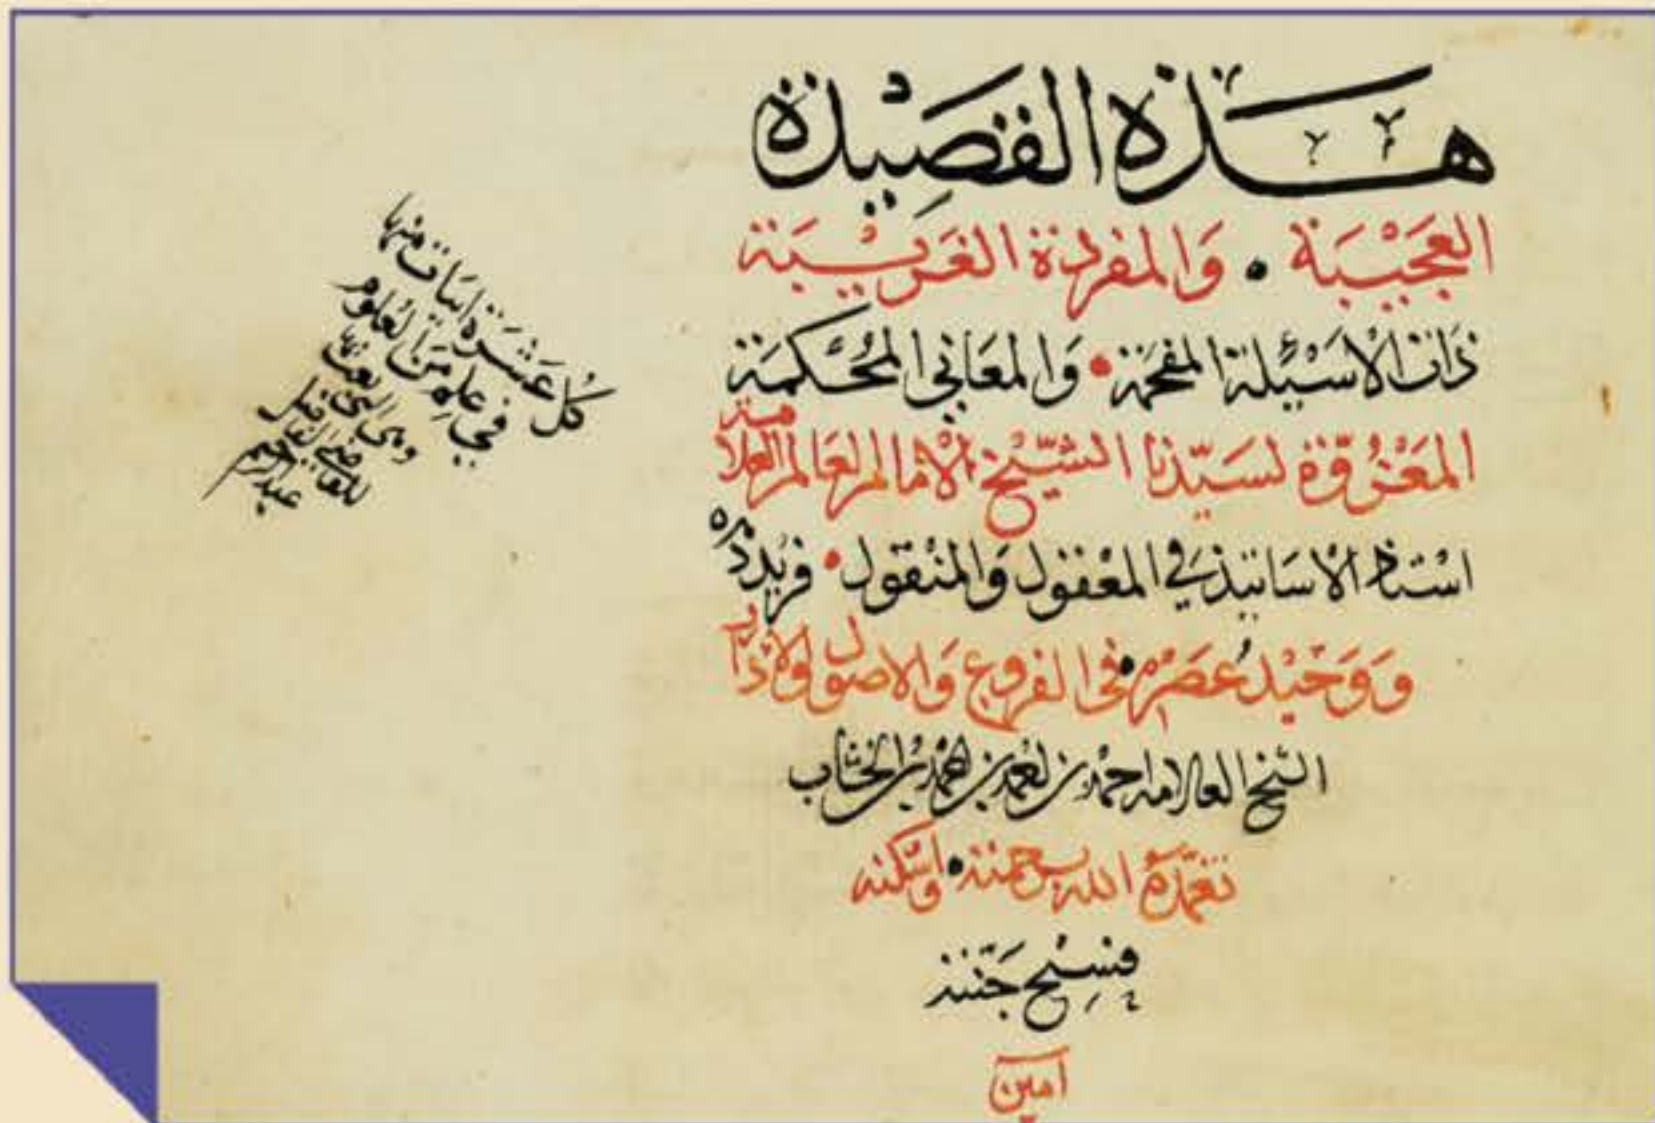 هذه القصيدة
العجيبة • والمفردة الغريبة
ذات الاسئلة المفحمة • والمعاني المحكمة
المعزوّة لسيّدنا الشيخ الامام العالم العلامة
استاذ الاساتيذ في المعقول والمنقول • فريد دهره
ووحيد عصره • في الفروع والاصول
الشيخ العلامه احمد بن محمد بن
تغمّده الله برحمته • واسكنه
فسيح جنته
امين
كل عشرة ابيات منها
في علم من العلوم
وهي التي بعثها
للقاضي الفاضل
عبد الرحيم